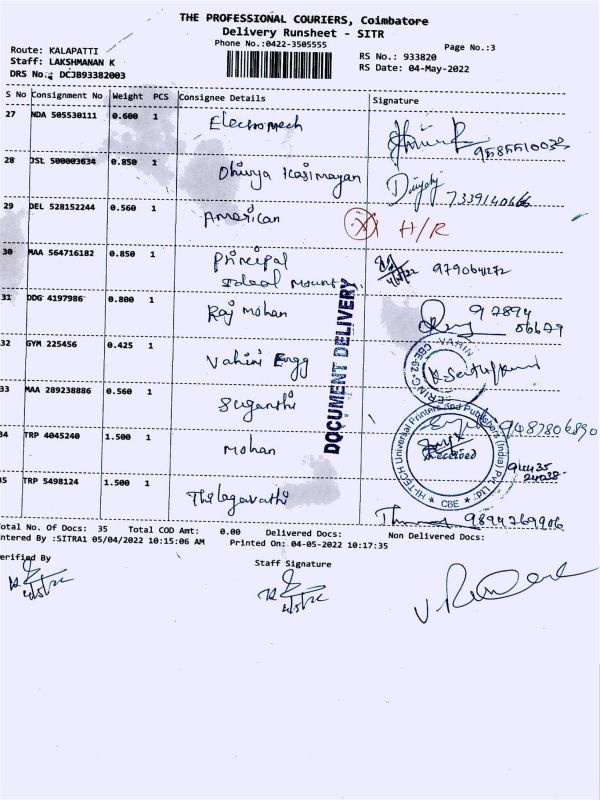 THE PROFESSIONAL COURIERS, Coimbatore
Delivery Runsheet - SITR
Phone No.:0422-3505555
Page No.:3
Route: KALAPATTI
Staff: LAKSHMANAN K
DRS No.: DCJB93382003
RS No.: 933820
RS Date: 04-May-2022
S No Consignment No Weight PCS Consignee Details Signature
27 NDA 505530111 0.600 1 Electromech
28 JSL 500003634 0.850 1 Dhivya Kasimayan 7339140666
29 DEL 528152244 0.560 1 American H/R
30 MAA 564716182 0.850 1 Principal
Ideal Mount
31 DDG 4197986 0.800 1 Raj Mohan 97894
56679
32 GYM 225456 0.425 1 Vahini Engg
33 MAA 289238886 0.560 1 Suganthi
34 TRP 4045240 1.500 1 Mohan 9487806890
35 TRP 5498124 1.500 1 Thilagavathi 9894769906
DOCUMENT DELIVERY
VAHIN
ERING
CBE-62
HI-TECH Universal Printers and Publishers (India) Pvt. Ltd.
CBE
Received
Total No. Of Docs: 35 Total COD Amt: 0.00 Delivered Docs: Non Delivered Docs:
Entered By :SITRA1 05/04/2022 10:15:06 AM Printed On: 04-05-2022 10:17:35
Verified By
Staff Signature
4/5/22
4/5/22